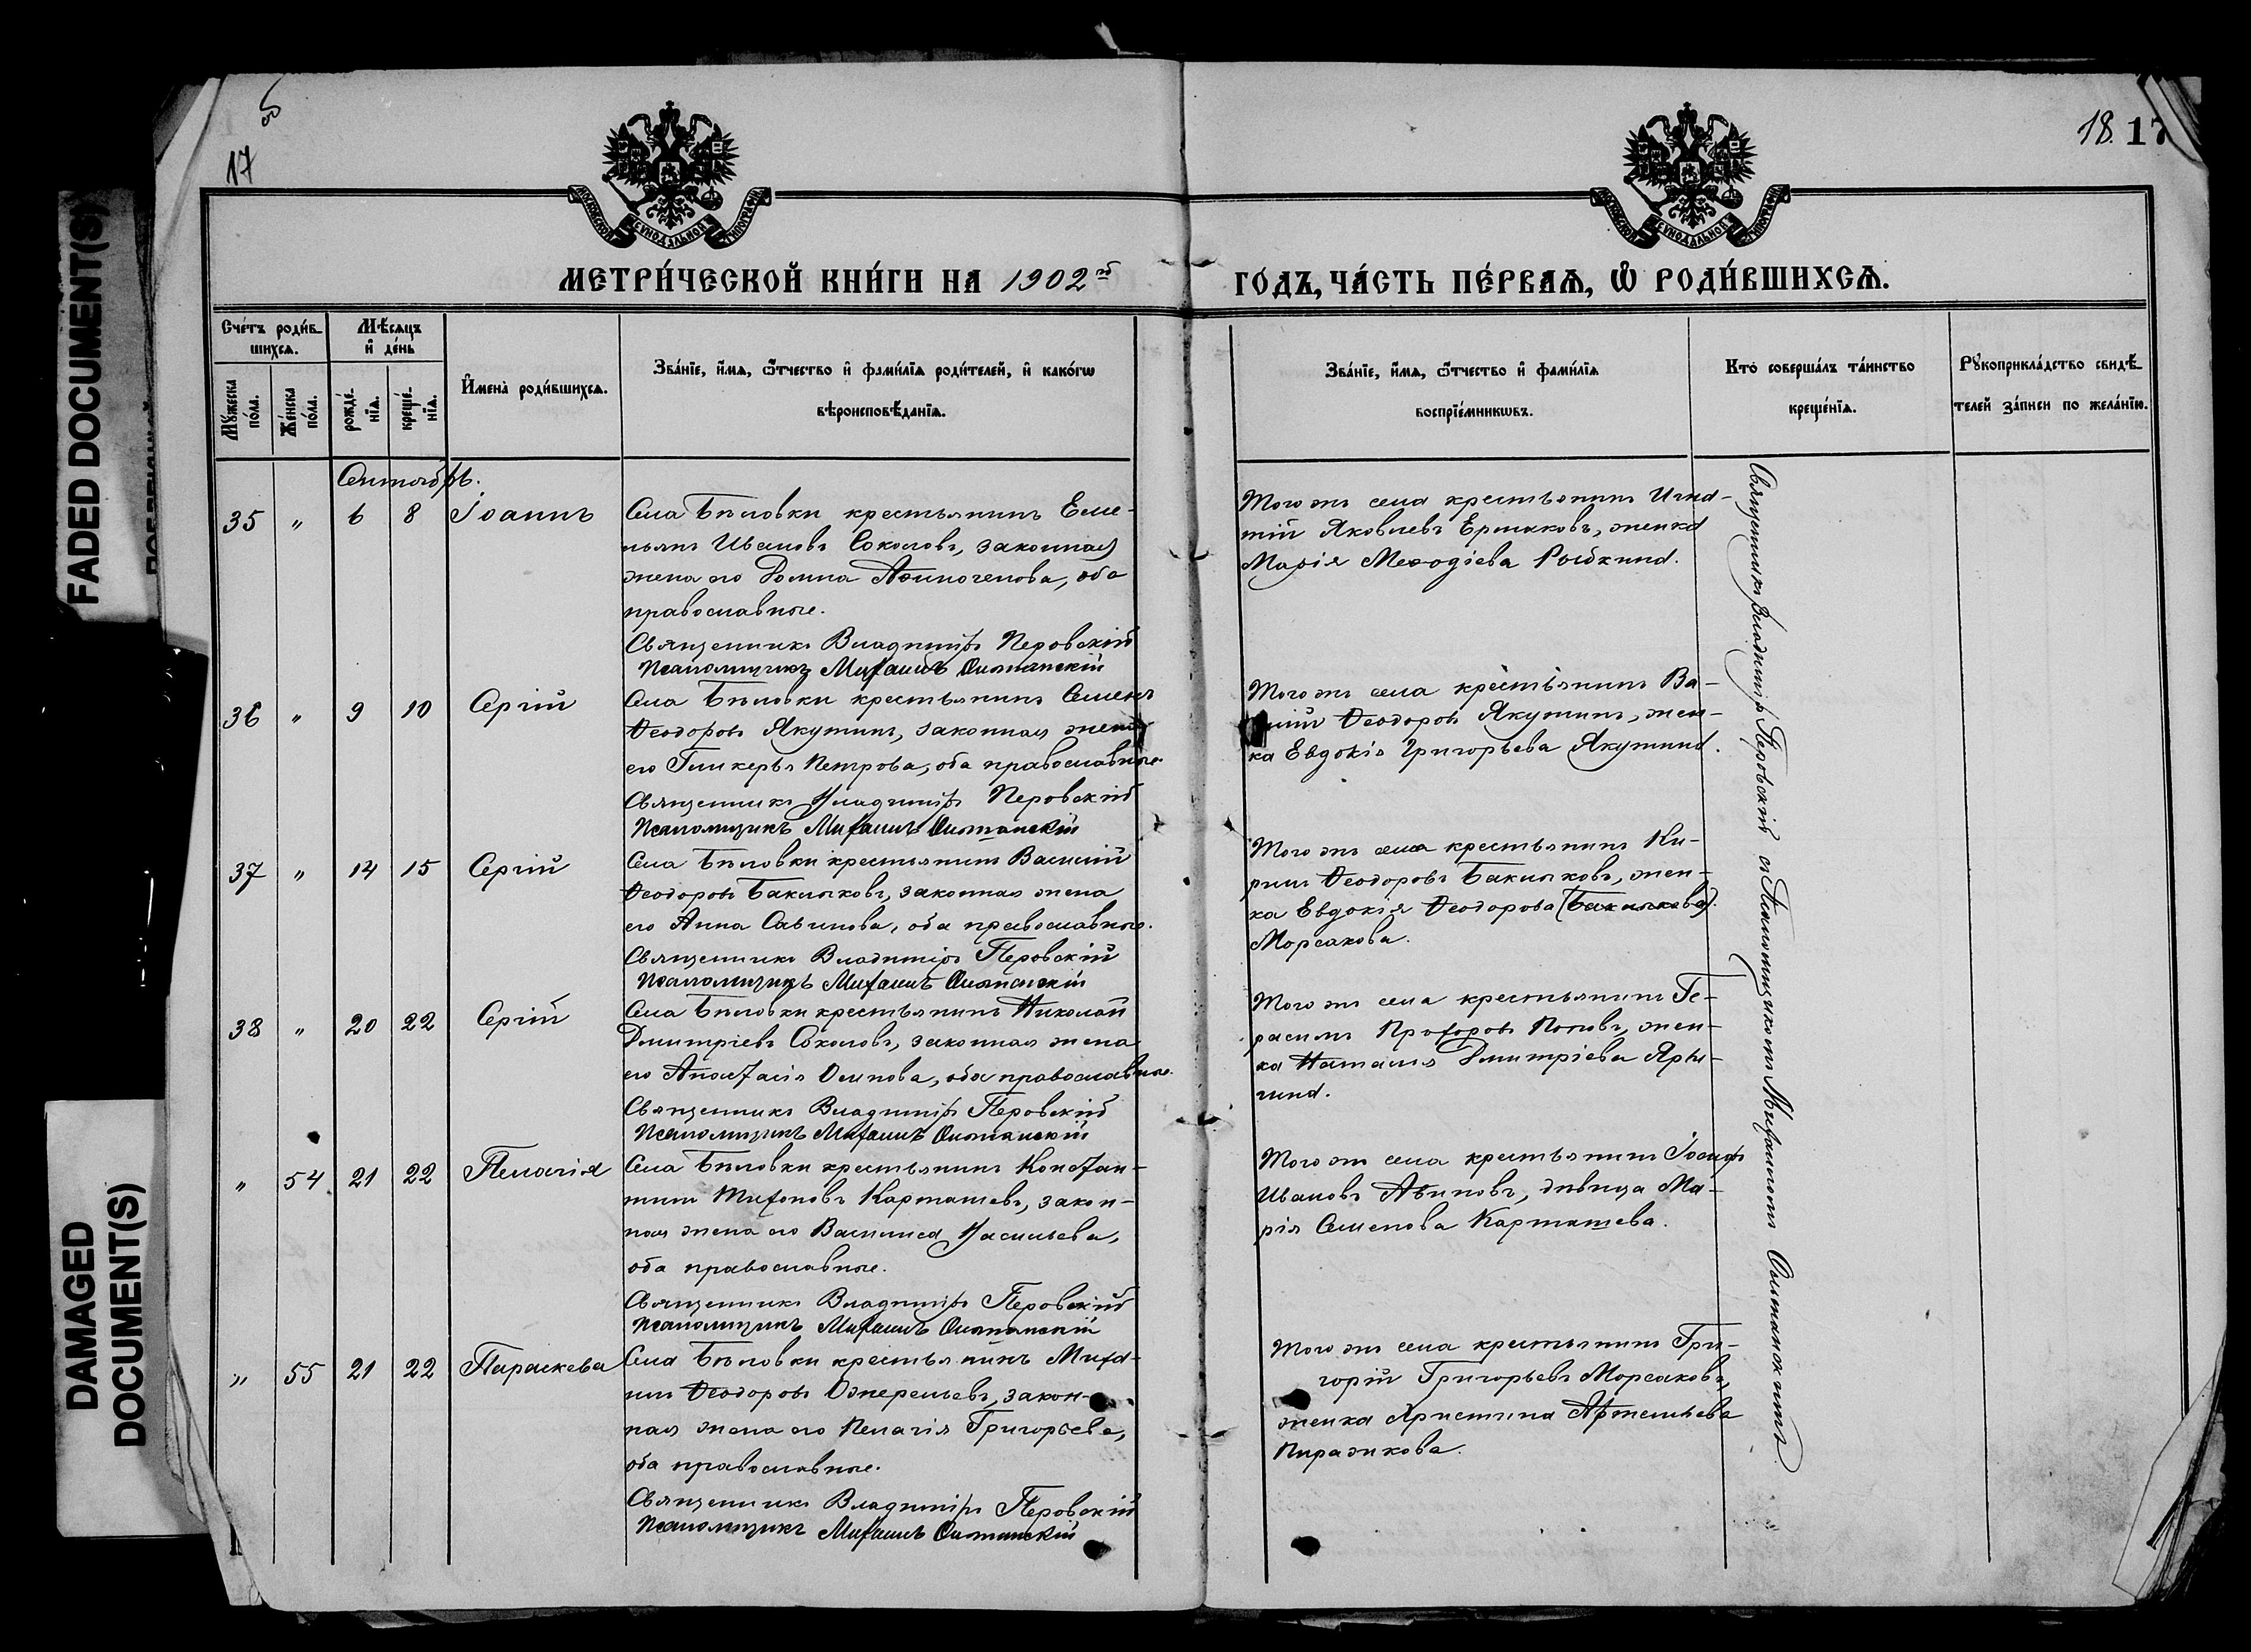 FADED DOCUMENT(S)
DAMAGED
DOCUMENT(S)
17
об
18. 17
МЕТРИ́ЧЕСКОЙ КНИ́ГИ НА 1902й
ГО́ДЪ, ЧА́СТЬ ПЕ́РВАѦ, Ѽ РОДИ́ВШИХСѦ.
Сче́тъ роди́в-
шихсѧ.
Мѣ́сѧцъ
и҆ де́нь
Мꙋ́жеска
по́ла.
Же́нска
по́ла.
рожде́-
нїѧ.
креще́-
нїѧ.
И҆мена̀ роди́вшихсѧ.
Зва́нїе, и҆́мѧ, ѻ҆́тчество и҆ фами́лїѧ роди́телей, и҆ како́гѡ
вѣроисповѣ́данїѧ.
Зва́нїе, и҆́мѧ, ѻ҆́тчество и҆ фами́лїѧ
воспрїе́мникѡвъ.
Кто̀ соверша́лъ та́инство
креще́нїѧ.
Рꙋкоприкла́дство свидѣ́-
телей за́писи по жела́нїю.
Сентябрь.
35 " 6 8 Іоаннъ
Села Бѣловки крестьянинъ Еме-
льянъ Ивановъ Соколовъ, законная
жена его Домна Афиногенова, оба
православные.
Священникъ Владиміръ Перовскій
Псаломщикъ Михаилъ
Того же села крестьянинъ Игна-
тій Яковлевъ Ермаковъ, женка
Марія Меѳодіева Рыбкина.
36 " 9 10 Сергій
Села Бѣловки крестьянинъ Семенъ
Ѳеодоровъ Якушинъ, законная жена
его Гликерья Петрова, оба православные.
Священникъ Владиміръ Перовскій
Псаломщикъ Михаилъ
Того же села крестьянинъ Ва-
силій Ѳеодоровъ Якушинъ, жен-
ка Евдокія Григорьева Якушина.
37 " 14 15 Сергій
Села Бѣловки крестьянинъ Василій
Ѳеодоровъ Баклыковъ, законная жена
его Анна Савинова, оба православные.
Священникъ Владиміръ Перовскій
Псаломщикъ Михаилъ
Того же села крестьянинъ Ки-
рилъ Ѳеодоровъ Баклыковъ, жен-
ка Евдокія Ѳеодорова (Баклыкова)
Морсакова.
38 " 20 22 Сергій
Села Бѣловки крестьянинъ Николай
Дмитріевъ Соколовъ, законная жена
его Анастасія Осипова, оба православные.
Священникъ Владиміръ Перовскій
Псаломщикъ Михаилъ
Того же села крестьянинъ Ге-
расимъ Прохоровъ Поповъ, жен-
ка Наталія Дмитріева Яры-
гина.
" 54 21 22 Пелагія
Села Бѣловки крестьянинъ Констан-
тинъ Тихоновъ Карташевъ, закон-
ная жена его Василиса Васильева,
оба православные.
Священникъ Владиміръ Перовскій
Псаломщикъ Михаилъ
Того же села крестьянинъ Іосифъ
Ивановъ Авиновъ, дѣвица Ма-
рія Семенова Карташева.
" 55 21 22 Параскева
Села Бѣловки крестьянинъ Миха-
илъ Ѳеодоровъ Ожерельевъ, закон-
ная жена его Пелагія Григорьева,
оба православные.
Священникъ Владиміръ Перовскій
Псаломщикъ Михаилъ
Того же села крестьянинъ Гри-
горій Григорьевъ Морсаковъ,
женка Христина Артемьева
Пиражкова.
Священникъ Владиміръ Перовскій съ Псаломщикомъ Михаиломъ